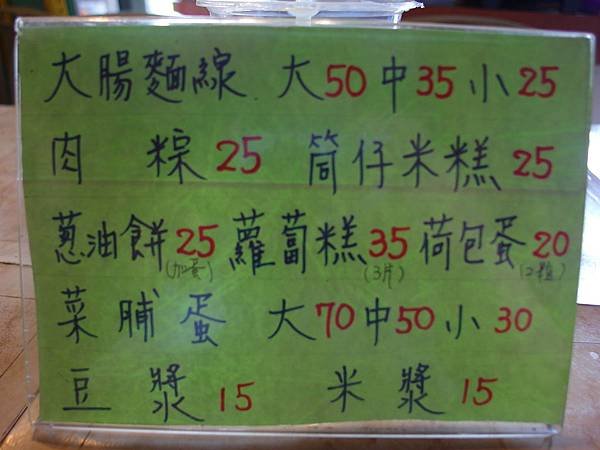 大腸麵線 大50中35小25
肉粽25 筒仔米糕25
蔥油餅25蘿蔔糕35荷包蛋20
(加蛋) (3片) (2粒)
菜脯蛋 大70中50小30
豆漿15 米漿15